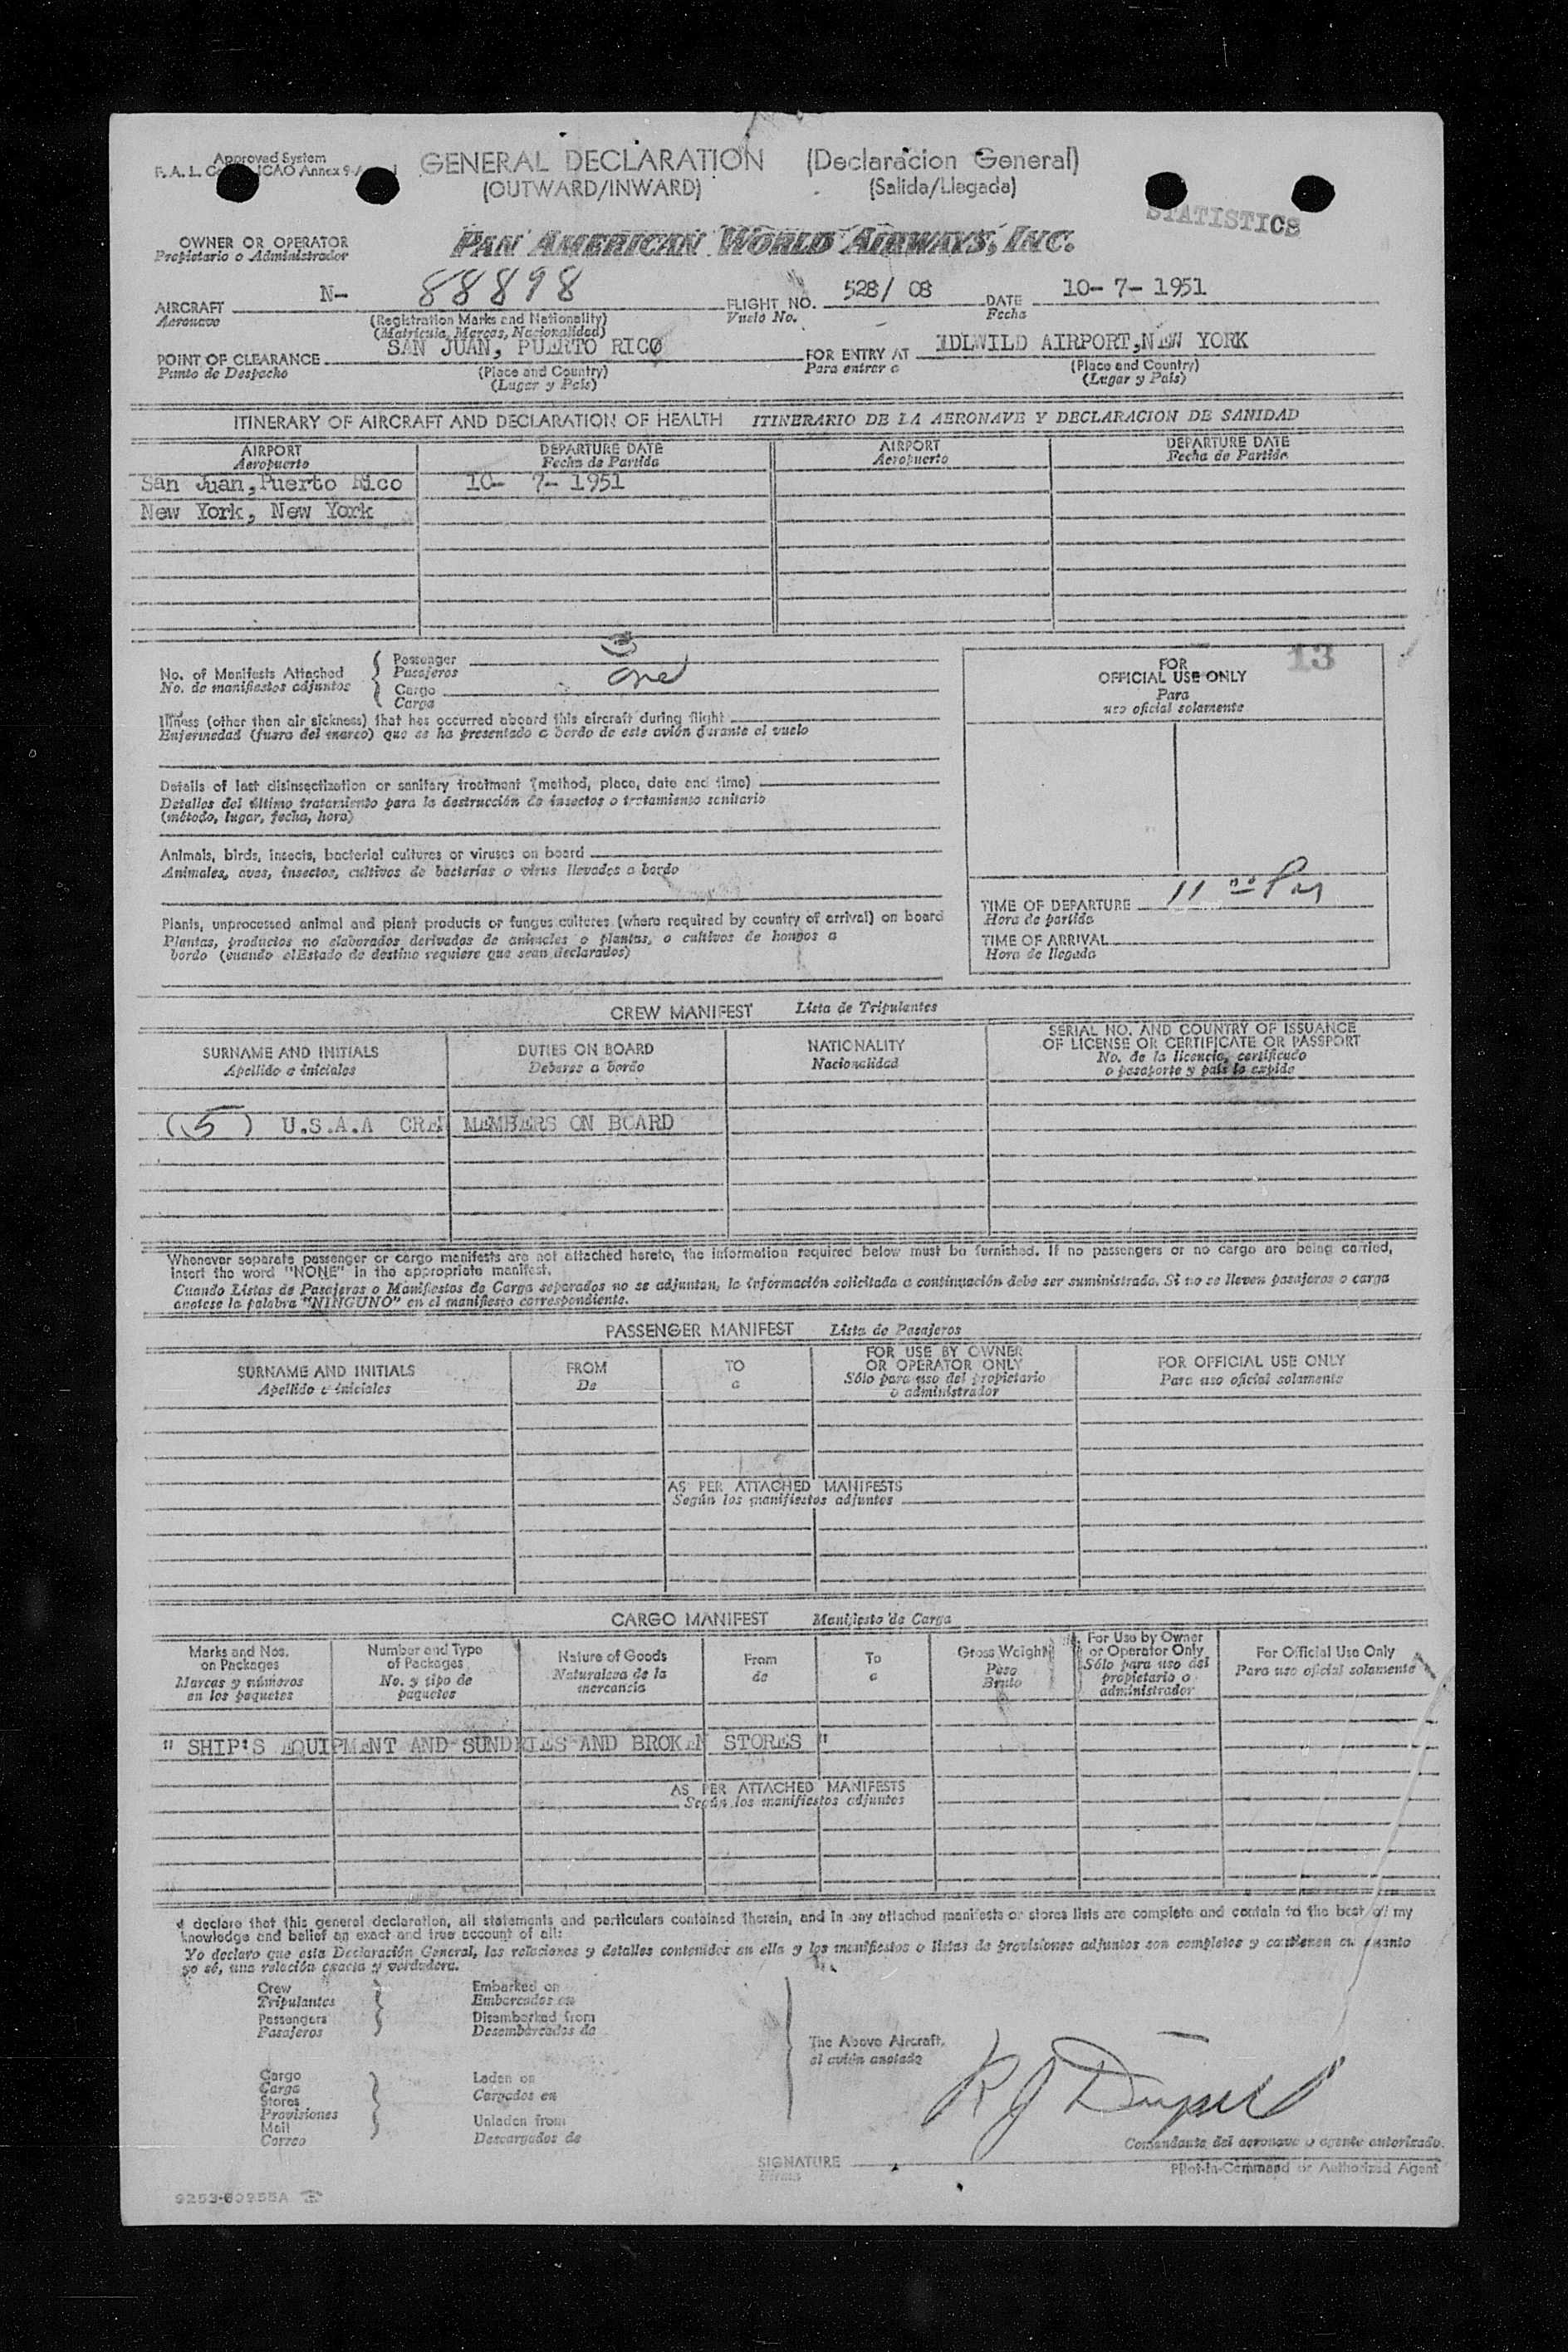 Approved System
GENERAL DECLARATION (Declaracion General)
F. A. L. ICAO Annex 9
(OUTWARD/INWARD) (Salida/Llegada)
STATISTICS
OWNER OR OPERATOR
Propietario o Administrador
PAN AMERICAN WORLD AIRWAYS, INC.
AIRCRAFT N- 88898 FLIGHT NO. 528/ 08 DATE 10- 7- 1951
Aeronave (Registration Marks and Nationality) Vuelo No. Fecha
(Matricula, Marcas, Nacionalidad)
POINT OF CLEARANCE SAN JUAN, PUERTO RICO FOR ENTRY AT IDLWILD AIRPORT,NEW YORK
Punto de Despacho (Place and Country) Para entrar a (Place and Country)
(Lugar y Pais) (Lugar y Pais)
ITINERARY OF AIRCRAFT AND DECLARATION OF HEALTH ITINERARIO DE LA AERONAVE Y DECLARACION DE SANIDAD
AIRPORT DEPARTURE DATE AIRPORT DEPARTURE DATE
Aeropuerto Fecha de Partida Aeropuerto Fecha de Partida
San Juan,Puerto Rico 10- 7- 1951
New York, New York
No. of Manifests Attached
No. de manifiestos adjuntos
Passenger
Pasajeros
Cargo one
Carga
Illness (other than air sickness) that has occurred aboard this aircraft during flight
Enfermedad (fuera del mareo) que se ha presentado a bordo de este avión durante el vuelo
Details of last disinsectization or sanitary treatment (method, place, date and time)
Detalles del último tratamiento para la destrucción de insectos o tratamiento sanitario
(método, lugar, fecha, hora)
Animals, birds, insects, bacterial cultures or viruses on board
Animales, aves, insectos, cultivos de bacterias o virus llevados a bordo
Plants, unprocessed animal and plant products or fungus cultures (where required by country of arrival) on board
Plantas, productos no elaborados derivados de animales o plantas, o cultivos de hongos a
bordo (cuando el Estado de destino requiere que sean declarados)
13
FOR
OFFICIAL USE ONLY
Para
uso oficial solamente
TIME OF DEPARTURE 11 00 PM
Hora de partida
TIME OF ARRIVAL
Hora de llegada
CREW MANIFEST Lista de Tripulantes
SURNAME AND INITIALS
Apellido e iniciales
DUTIES ON BOARD
Deberes a bordo
NATIONALITY
Nacionalidad
SERIAL NO. AND COUNTRY OF ISSUANCE
OF LICENSE OR CERTIFICATE OR PASSPORT
No. de la licencia, certificado
o pasaporte y pais lo expide
(5) U.S.A.A CREW MEMBERS ON BOARD
Whenever separate passenger or cargo manifests are not attached hereto, the information required below must be furnished. If no passengers or no cargo are being carried,
insert the word "NONE" in the appropriate manifest.
Cuando Listas de Pasajeros o Manifiestos de Carga separados no se adjuntan, la información solicitada a continuación debe ser suministrada. Si no se lleven pasajeros o carga
anotese la palabra "NINGUNO" en el manifiesto correspondiente.
PASSENGER MANIFEST Lista de Pasajeros
SURNAME AND INITIALS
Apellido e iniciales
FROM
De
TO
a
FOR USE BY OWNER
OR OPERATOR ONLY
Sólo para uso del propietario
o administrador
FOR OFFICIAL USE ONLY
Para uso oficial solamente
AS PER ATTACHED MANIFESTS
Según los manifiestos adjuntos
CARGO MANIFEST Manifiesto de Carga
Marks and Nos.
on Packages
Marcas y números
en los paquetes
Number and Type
of Packages
No. y tipo de
paquetes
Nature of Goods
Naturaleza de la
mercancía
From
de
To
a
Gross Weight
Peso
Bruto
For Use by Owner
or Operator Only
Sólo para uso del
propietario o
administrador
For Official Use Only
Para uso oficial solamente
" SHIP'S EQUIPMENT AND SUNDRIES AND BROKEN STORES "
AS PER ATTACHED MANIFESTS
Según los manifiestos adjuntos
I declare that this general declaration, all statements and particulars contained therein, and in any attached manifests or stores lists are complete and contain to the best of my
knowledge and belief an exact and true account of all:
Yo declaro que esta Declaración General, las relaciones y detalles contenidos en ella y los manifiestos o listas de provisiones adjuntos son completos y contienen en cuanto
yo sé, una relación exacta y verdadera.
Crew
Tripulantes
Passengers
Pasajeros
Embarked on
Embarcados en
Disembarked from
Desembarcados de
Cargo
Carga
Stores
Provisiones
Mail
Correo
Laden on
Cargados en
Unladen from
Descargados de
The Above Aircraft.
el avión anotado
Comandante del aeronave o agente autorizado.
SIGNATURE
Firma
Pilot-in-Command or Authorized Agent